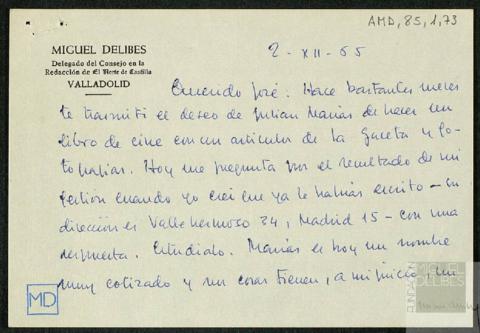 AMD, 85, 1, 73
MIGUEL DELIBES
Delegado del Consejo en la
Redacción de El Norte de Castilla
VALLADOLID
2-XII-65
Querido José: Hace bastantes meses
te transmití el deseo de Julián Marías de hacer un
libro de cine con un artículos de la Gaceta y fo-
tografías. Hoy me pregunta por el resultado de mi
gestión cuando yo creí que ya le habías escrito - su
dirección es Vallehermoso 34, Madrid 15 - con una
respuesta. Estúdialo. Marías es hoy un nombre
muy cotizado y sus cosas tienen, a mi juicio, un
MD
FUNDACIÓN
MIGUEL
DELIBES